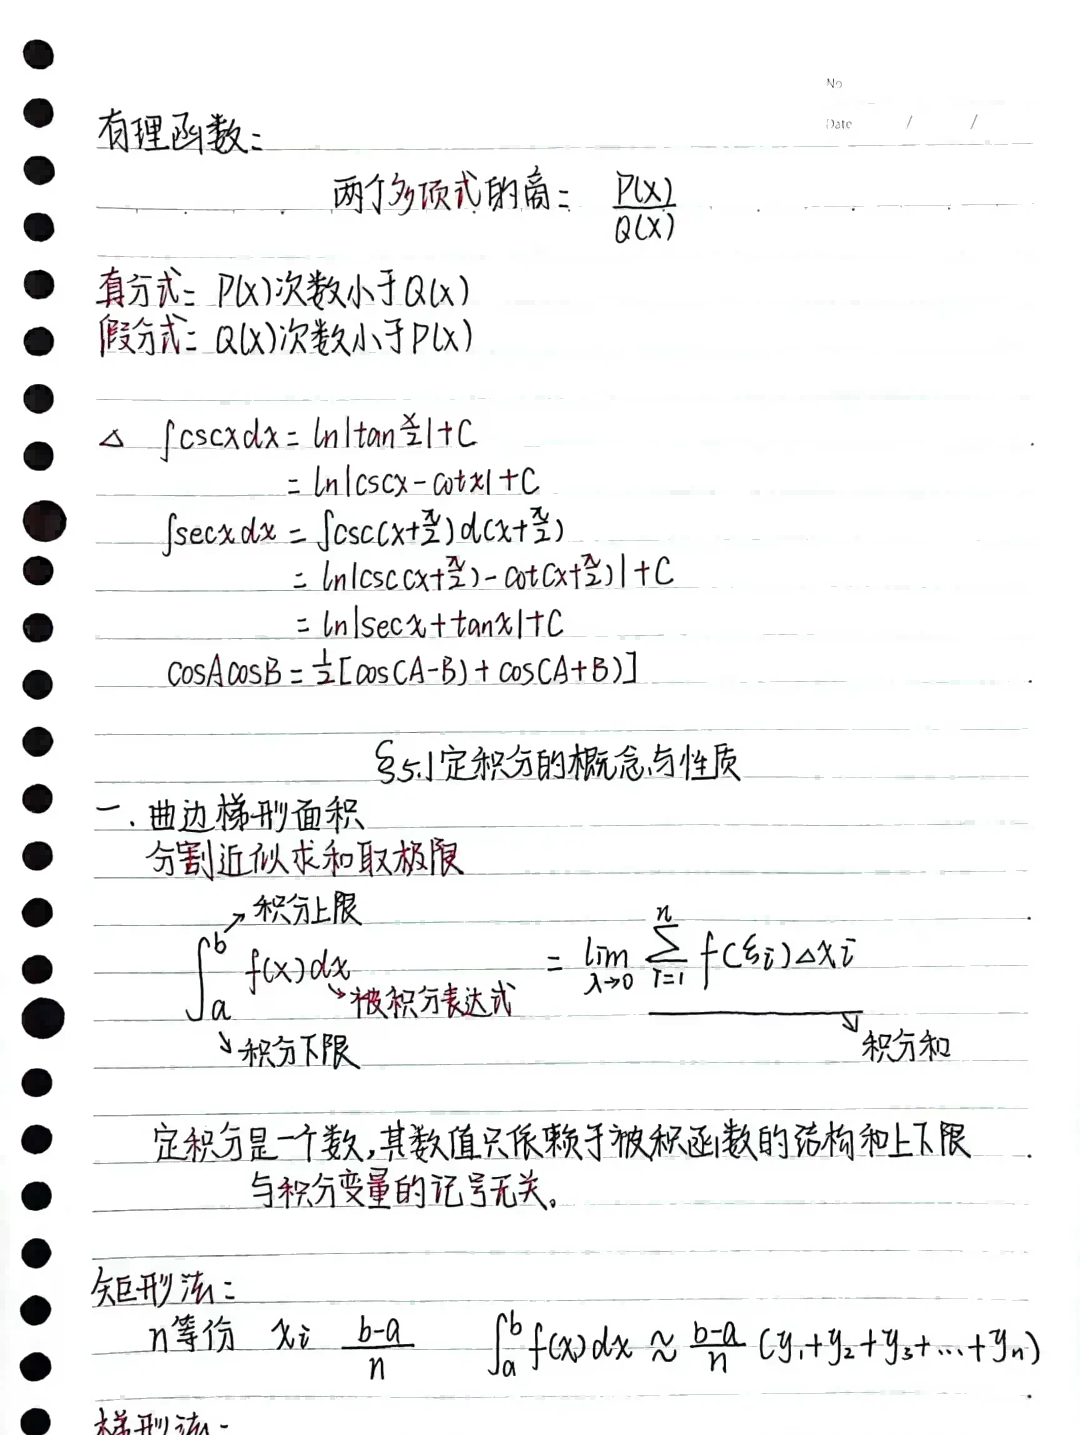 No
Date / /
有理函数:
两个多项式的商: P(x)/Q(x)
真分式: P(x)次数小于Q(x)
假分式: Q(x)次数小于P(x)
△ ∫cscxdx = ln|tan x/2|+C
= ln|cscx-cotx|+C
∫secxdx = ∫csc(x+π/2)d(x+π/2)
= ln|csc(x+π/2)-cot(x+π/2)|+C
= ln|secx+tanx|+C
cosAcosB = 1/2[cos(A-B)+cos(A+B)]
§5.1定积分的概念与性质
一.曲边梯形面积
分割近似求和取极限
积分上限
∫_a^b f(x)dx = lim_{λ→0} Σ_{i=1}^n f(ξi)△xi
被积分表达式
积分下限 积分和
定积分是一个数,其数值只依赖于被积函数的结构和上下限
与积分变量的记号无关。
矩形法:
n等份 xi (b-a)/n ∫_a^b f(x)dx ≈ (b-a)/n (y₁+y₂+y₃+...+yn)
梯形法: